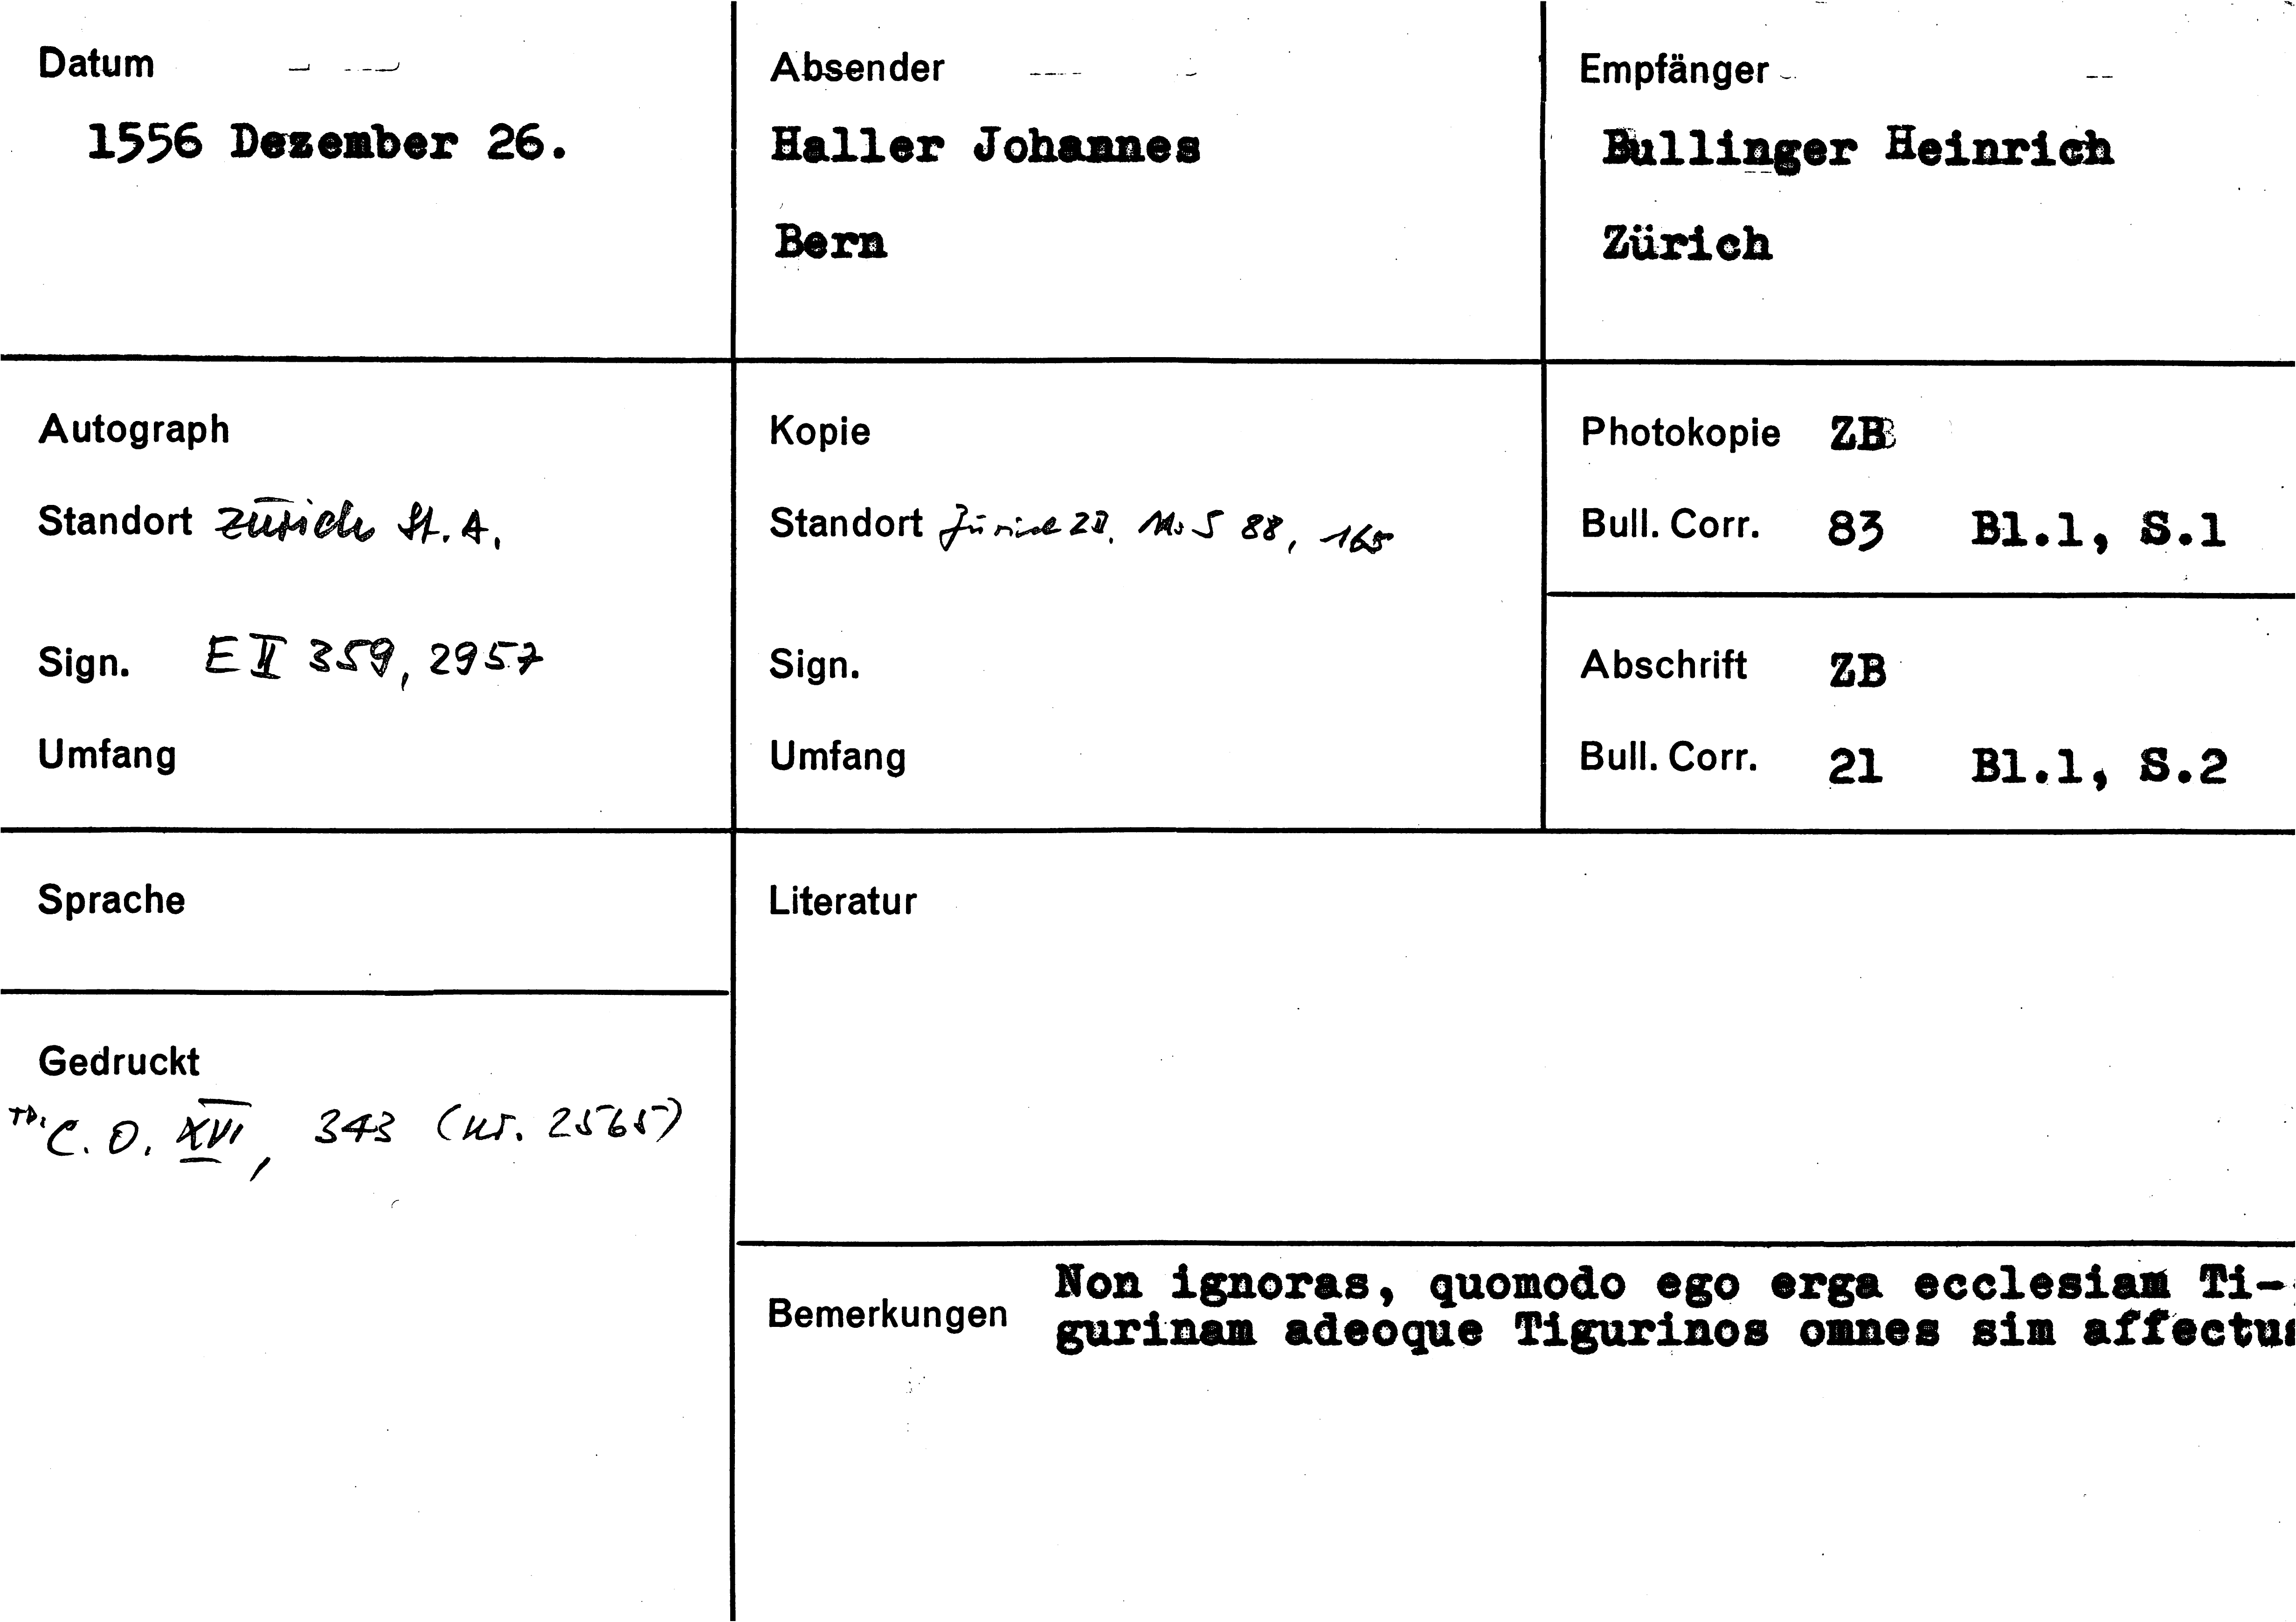 Datum
1556 Dezember 26.
Absender
Haller Johannes
Bern
Empfänger
Bullinger Heinrich
Zürich
Autograph
Standort Zürich St. A.
Sign. E II 359, 2957
Umfang
Kopie
Standort Zürich ZB, Ms S 88, 165
Sign.
Umfang
Photokopie ZB
Bull. Corr. 83 Bl.1, S.1
Abschrift ZB
Bull. Corr. 21 Bl.1, S.2
Sprache
Gedruckt
TD. C. O. XVI, 343 (nr. 2565)
Literatur
Bemerkungen
Non ignoras, quomodo ego erga ecclesiam Ti-
gurinam adeoque Tigurinos omnes sim affectus